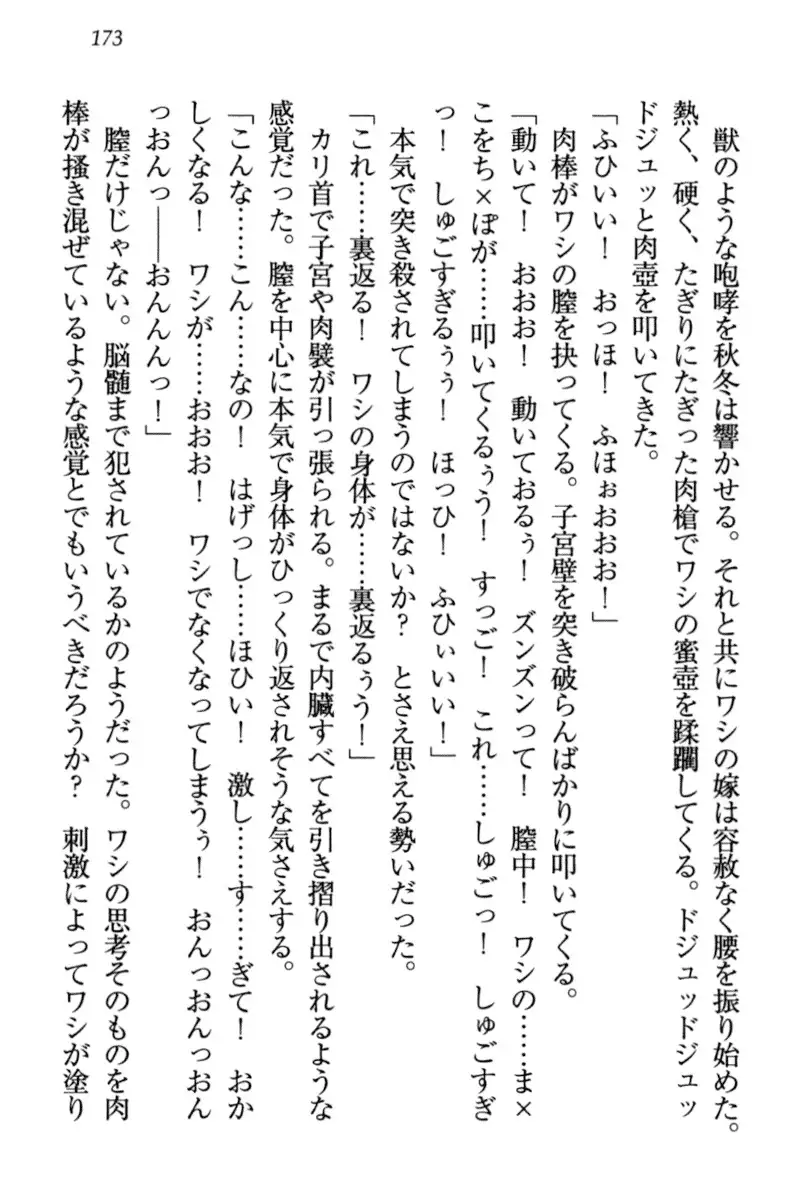 173
獣のような咆哮を秋冬は響かせる。それと共にワシの嫁は容赦なく腰を振り始めた。
熱く、硬く、たぎりにたぎった肉槍でワシの蜜壺を蹂躙してくる。ドジュッドジュッ
ドジュッと肉壺を叩いてきた。
「ふひいい！　おっほ！　ふほぉおおお！」
肉棒がワシの膣を抉ってくる。子宮壁を突き破らんばかりに叩いてくる。
「動いて！　おおお！　動いておるぅ！　ズンズンって！　膣中！　ワシの……ま×
こをち×ぽが……叩いてくるぅう！　すっご！　これ……しゅごっ！　しゅごすぎ
っ！　しゅごすぎるぅぅ！　ほっひ！　ふひぃいい！」
本気で突き殺されてしまうのではないか？　とさえ思える勢いだった。
「これ……裏返る！　ワシの身体が……裏返るぅう！」
カリ首で子宮や肉襞が引っ張られる。まるで内臓すべてを引き摺り出されるような
感覚だった。膣を中心に本気で身体がひっくり返されそうな気さえする。
「こんな……こん……なの！　はげっし……ほひい！　激し……す……ぎて！　おか
しくなる！　ワシが……おおお！　ワシでなくなってしまうぅ！　おんっおんっおん
っおんっ――おんんんっ！」
膣だけじゃない。脳髄まで犯されているかのようだった。ワシの思考そのものを肉
棒が掻き混ぜているような感覚とでもいうべきだろうか？　刺激によってワシが塗り